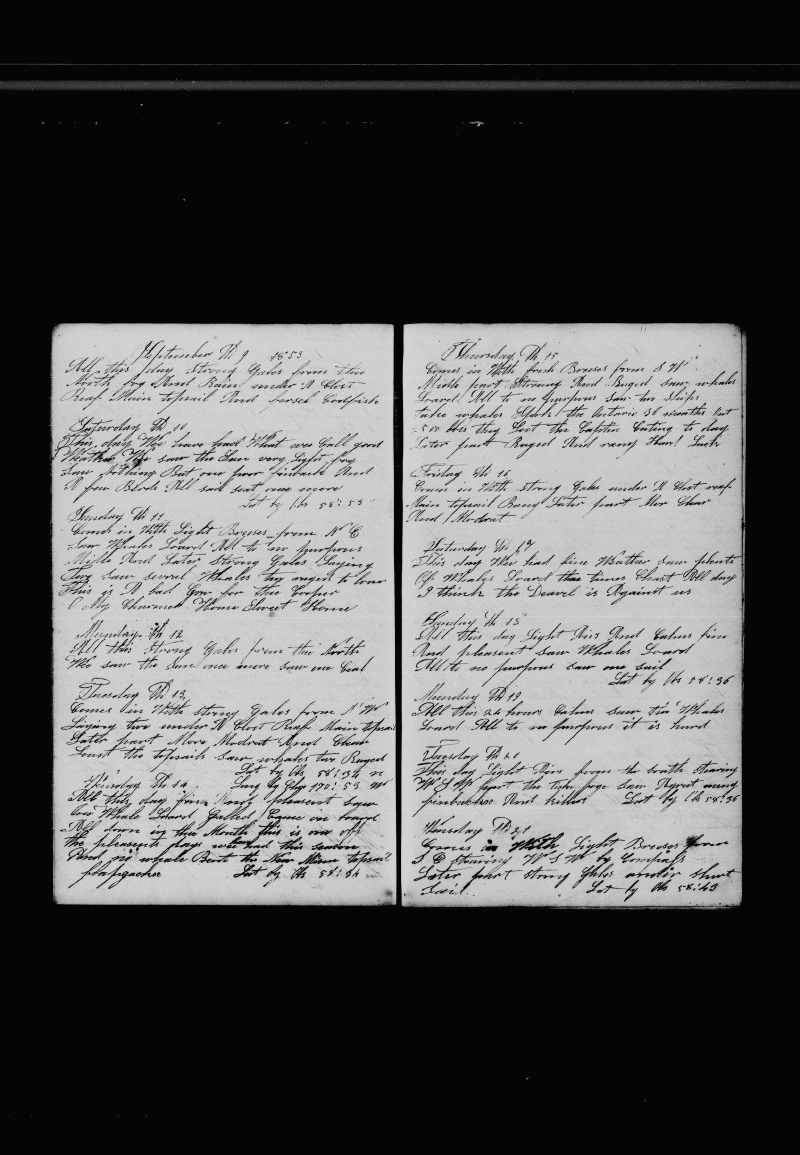 September Th 9 1853
All this day Strong Gales from the
North fog And Rain under A Clost
Reaf Main topsail And forsch Codfish
Saturday Th 10
This day We have had What we Call good
Weather We saw the Sun very Light fog
Saw Nothing But one poor finback And
A few Birds All said seat one more
Lat by Obs 58:55
Sunday Th 11
Comes in With Light Breeses from N E
Saw Whales Loard All to no purpous
Midle And Later Strong Gales Laying
Two saw severl Whales tey to
This is A bad Gon for the Cooper
O My Charmed Home Sweet Home
Munday Th 12
All this Strong Gales from the North
We saw the Sun once more saw one Seal
Tuesday Th 13
Comes in With strong Gales from N W
Laying two under A Clost Reaf Main topsail
Later part More Modrat And Clear
Loust the topsails saw whales two Ruged
Lat by Obs 58:34 N
Wensday Th 14 Long by 170:53 W
All this day fine And pleasent saw
Whale Loard Galled Come on board
All down in the Mouth this is one off
the pleasents days we had this season
And no whale But the New Main topsail
Lat by Obs 58:34
Thursday Th 15
Comes in With fresh Breeses from S W
Midle part Strong And Ruged saw whales
Loard All to no purpous saw two Ships
take whales Spoak the Ontario 36 months out
1500 bbls they Lost the Cutting to day
Later part Ruged And rany Hard Luck
Friday Th 16
Comes in With strong Gales under A Clost reaf
Main topsail Rany Later part Mor Clear
And Modrat
Saturday Th 17
This day We had fine Wather saw plenty
Of Whales Loard three times Chast All day
I think the Deavel is Against us
Sunday Th 18
All this day Light Airs And Calms fine
And pleasent saw Whales Loard
All to no purpous saw one sail
Lat by Obs 58:36
Munday Th 19
All this 24 hours Calms saw Whales
Loard All to no purpous it is hard
Tuesday Th 20
This day Light Airs from the south stearing
W S W part the time foge saw meny
finbacks And killers Lat by Obs 58:36
Wensday Th 21
Comes in With Light Breeses from
S E stearing W S W by Compass
Later part strong Gales under short
Sail Lat by Obs 58:43